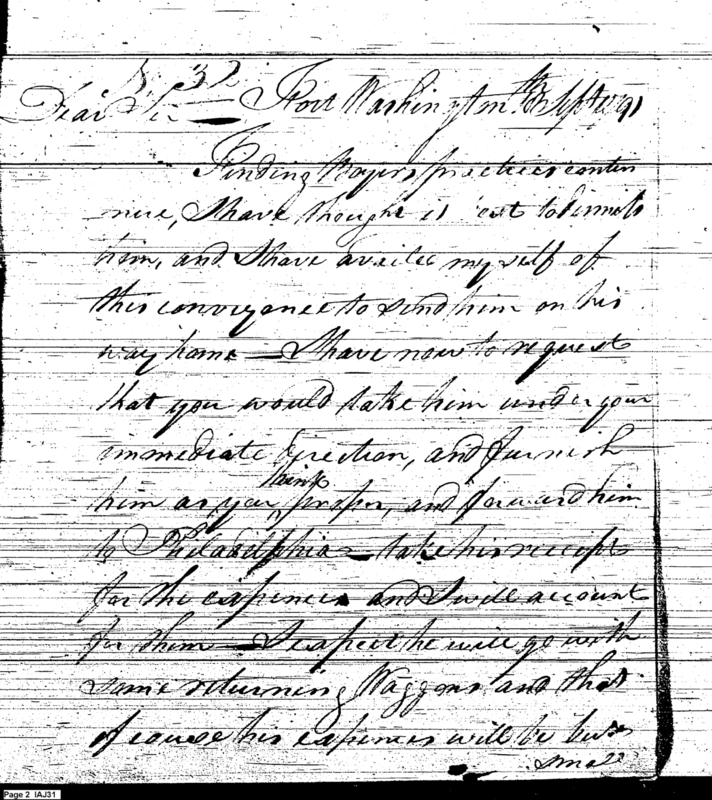 N. 32
Dear Sir Fort Washington 8th Septr 91
Finding Boyers practices contin
nue, I have thought it best to dismiss
him, and I have availed myself of
this conveyance to send him on his
way home — I have now to request
that you would take him under your
immediate direction, and furnish
think
him as you proper, and forward him
to Philadelphia — take his receipt
for the expences and I will account
for them — I expect he will go with
some returning Waggons and that
of course his expences will be but
small
Page 2 IAJ31